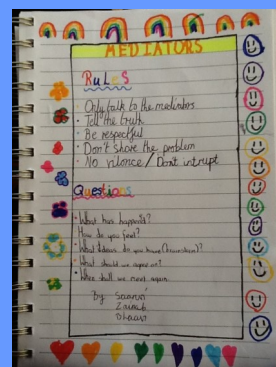 MEDIATORS
RuLeS
· Only talk to the mediators
· Tell the truth
· Be respectful
· Don't share the problem
· No vilonce / Dont intrupt
Questions
· What has happend?
How do you feel?
· What Ideas do you have (brainstorm)?
· What should we agree on?
· When shall we meet again.
By